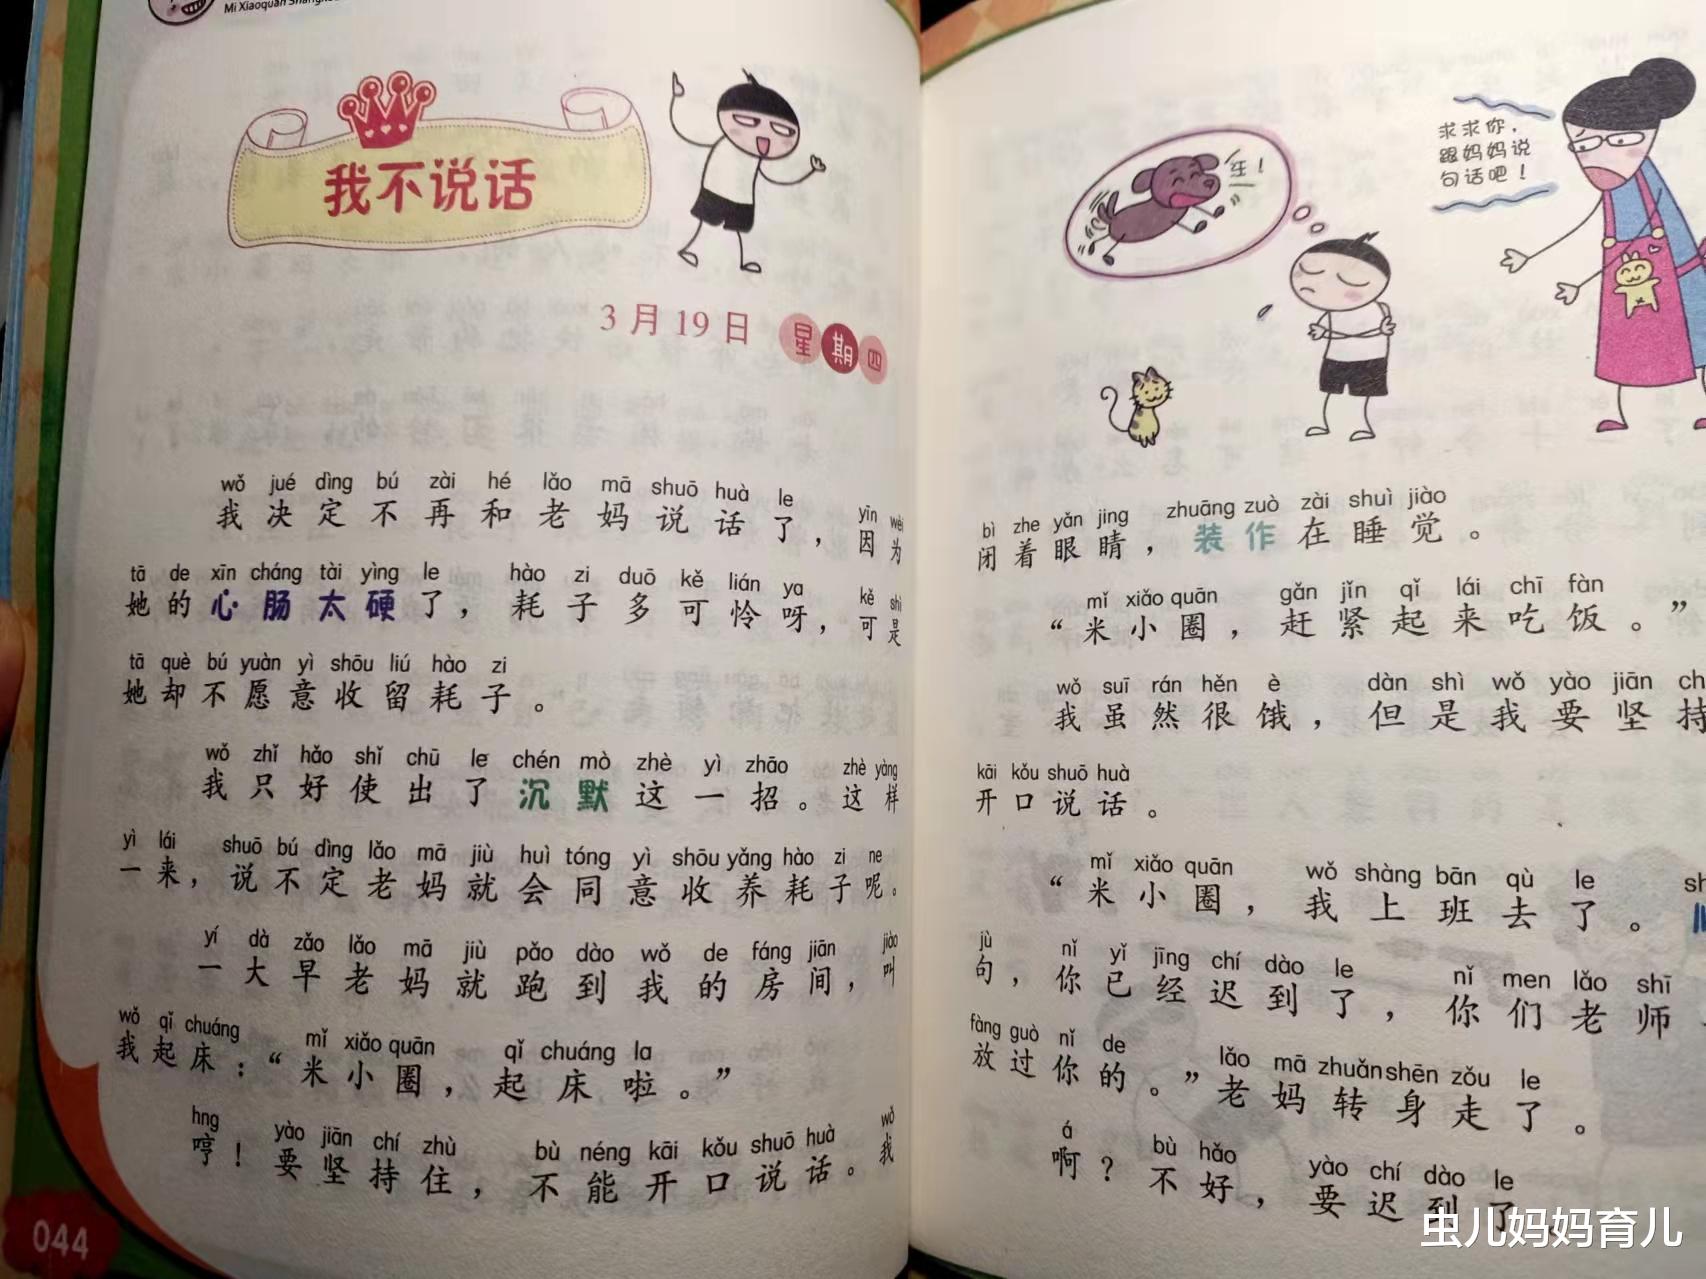 Mi Xiaoquan
我不说话
3月19日 星期四
wǒ jué dìng bú zài hé lǎo mā shuō huà le yīn wèi
我决定不再和老妈说话了，因为
tā de xīn cháng tài yìng le hào zi duō kě lián ya kě shì
她的心肠太硬了，耗子多可怜呀，可是
tā què bú yuàn yì shōu liú hào zi
她却不愿意收留耗子。
wǒ zhǐ hǎo shǐ chū le chén mò zhè yì zhāo zhè yàng
我只好使出了沉默这一招。这样
yì lái shuō bú dìng lǎo mā jiù huì tóng yì shōu yǎng hào zi ne
一来，说不定老妈就会同意收养耗子呢。
yí dà zǎo lǎo mā jiù pǎo dào wǒ de fáng jiān jiào
一大早老妈就跑到我的房间，叫
wǒ qǐ chuáng mǐ xiǎo quān qǐ chuáng la
我起床：“米小圈，起床啦。”
hng yào jiān chí zhù bù néng kāi kǒu shuō huà wǒ
哼！要坚持住，不能开口说话。我
044
求求你，
跟妈妈说
句话吧！
bì zhe yǎn jing zhuāng zuò zài shuì jiào
闭着眼睛，装作在睡觉。
mǐ xiǎo quān gǎn jǐn qǐ lái chī fàn
“米小圈，赶紧起来吃饭。”
wǒ suī rán hěn è dàn shì wǒ yào jiān ch
我虽然很饿，但是我要坚持
kāi kǒu shuō huà
开口说话。
mǐ xiǎo quān wǒ shàng bān qù le sh
“米小圈，我上班去了。
jù nǐ yǐ jīng chí dào le nǐ men lǎo shī
句，你已经迟到了，你们老师
fàng guò nǐ de lǎo mā zhuǎn shēn zǒu le
放过你的。”老妈转身走了。
á bù hǎo yào chí dào le
啊？不好，要迟到了
虫儿妈妈育儿